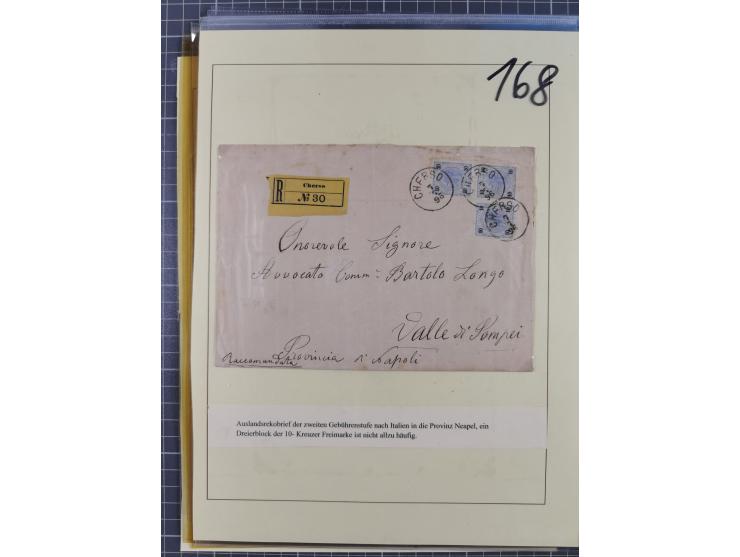 168
CHERSO
CHERSO
CHERSO
R
Cherso
№ 30
Onorevole Signore
Avvocato Comm: Bartolo Longo
Valle di Pompei
Provincia di Napoli
Raccomandata
Auslandsrekobrief der zweiten Gebührenstufe nach Italien in die Provinz Neapel, ein
Dreierblock der 10- Kreuzer Freimarke ist nicht allzu häufig.